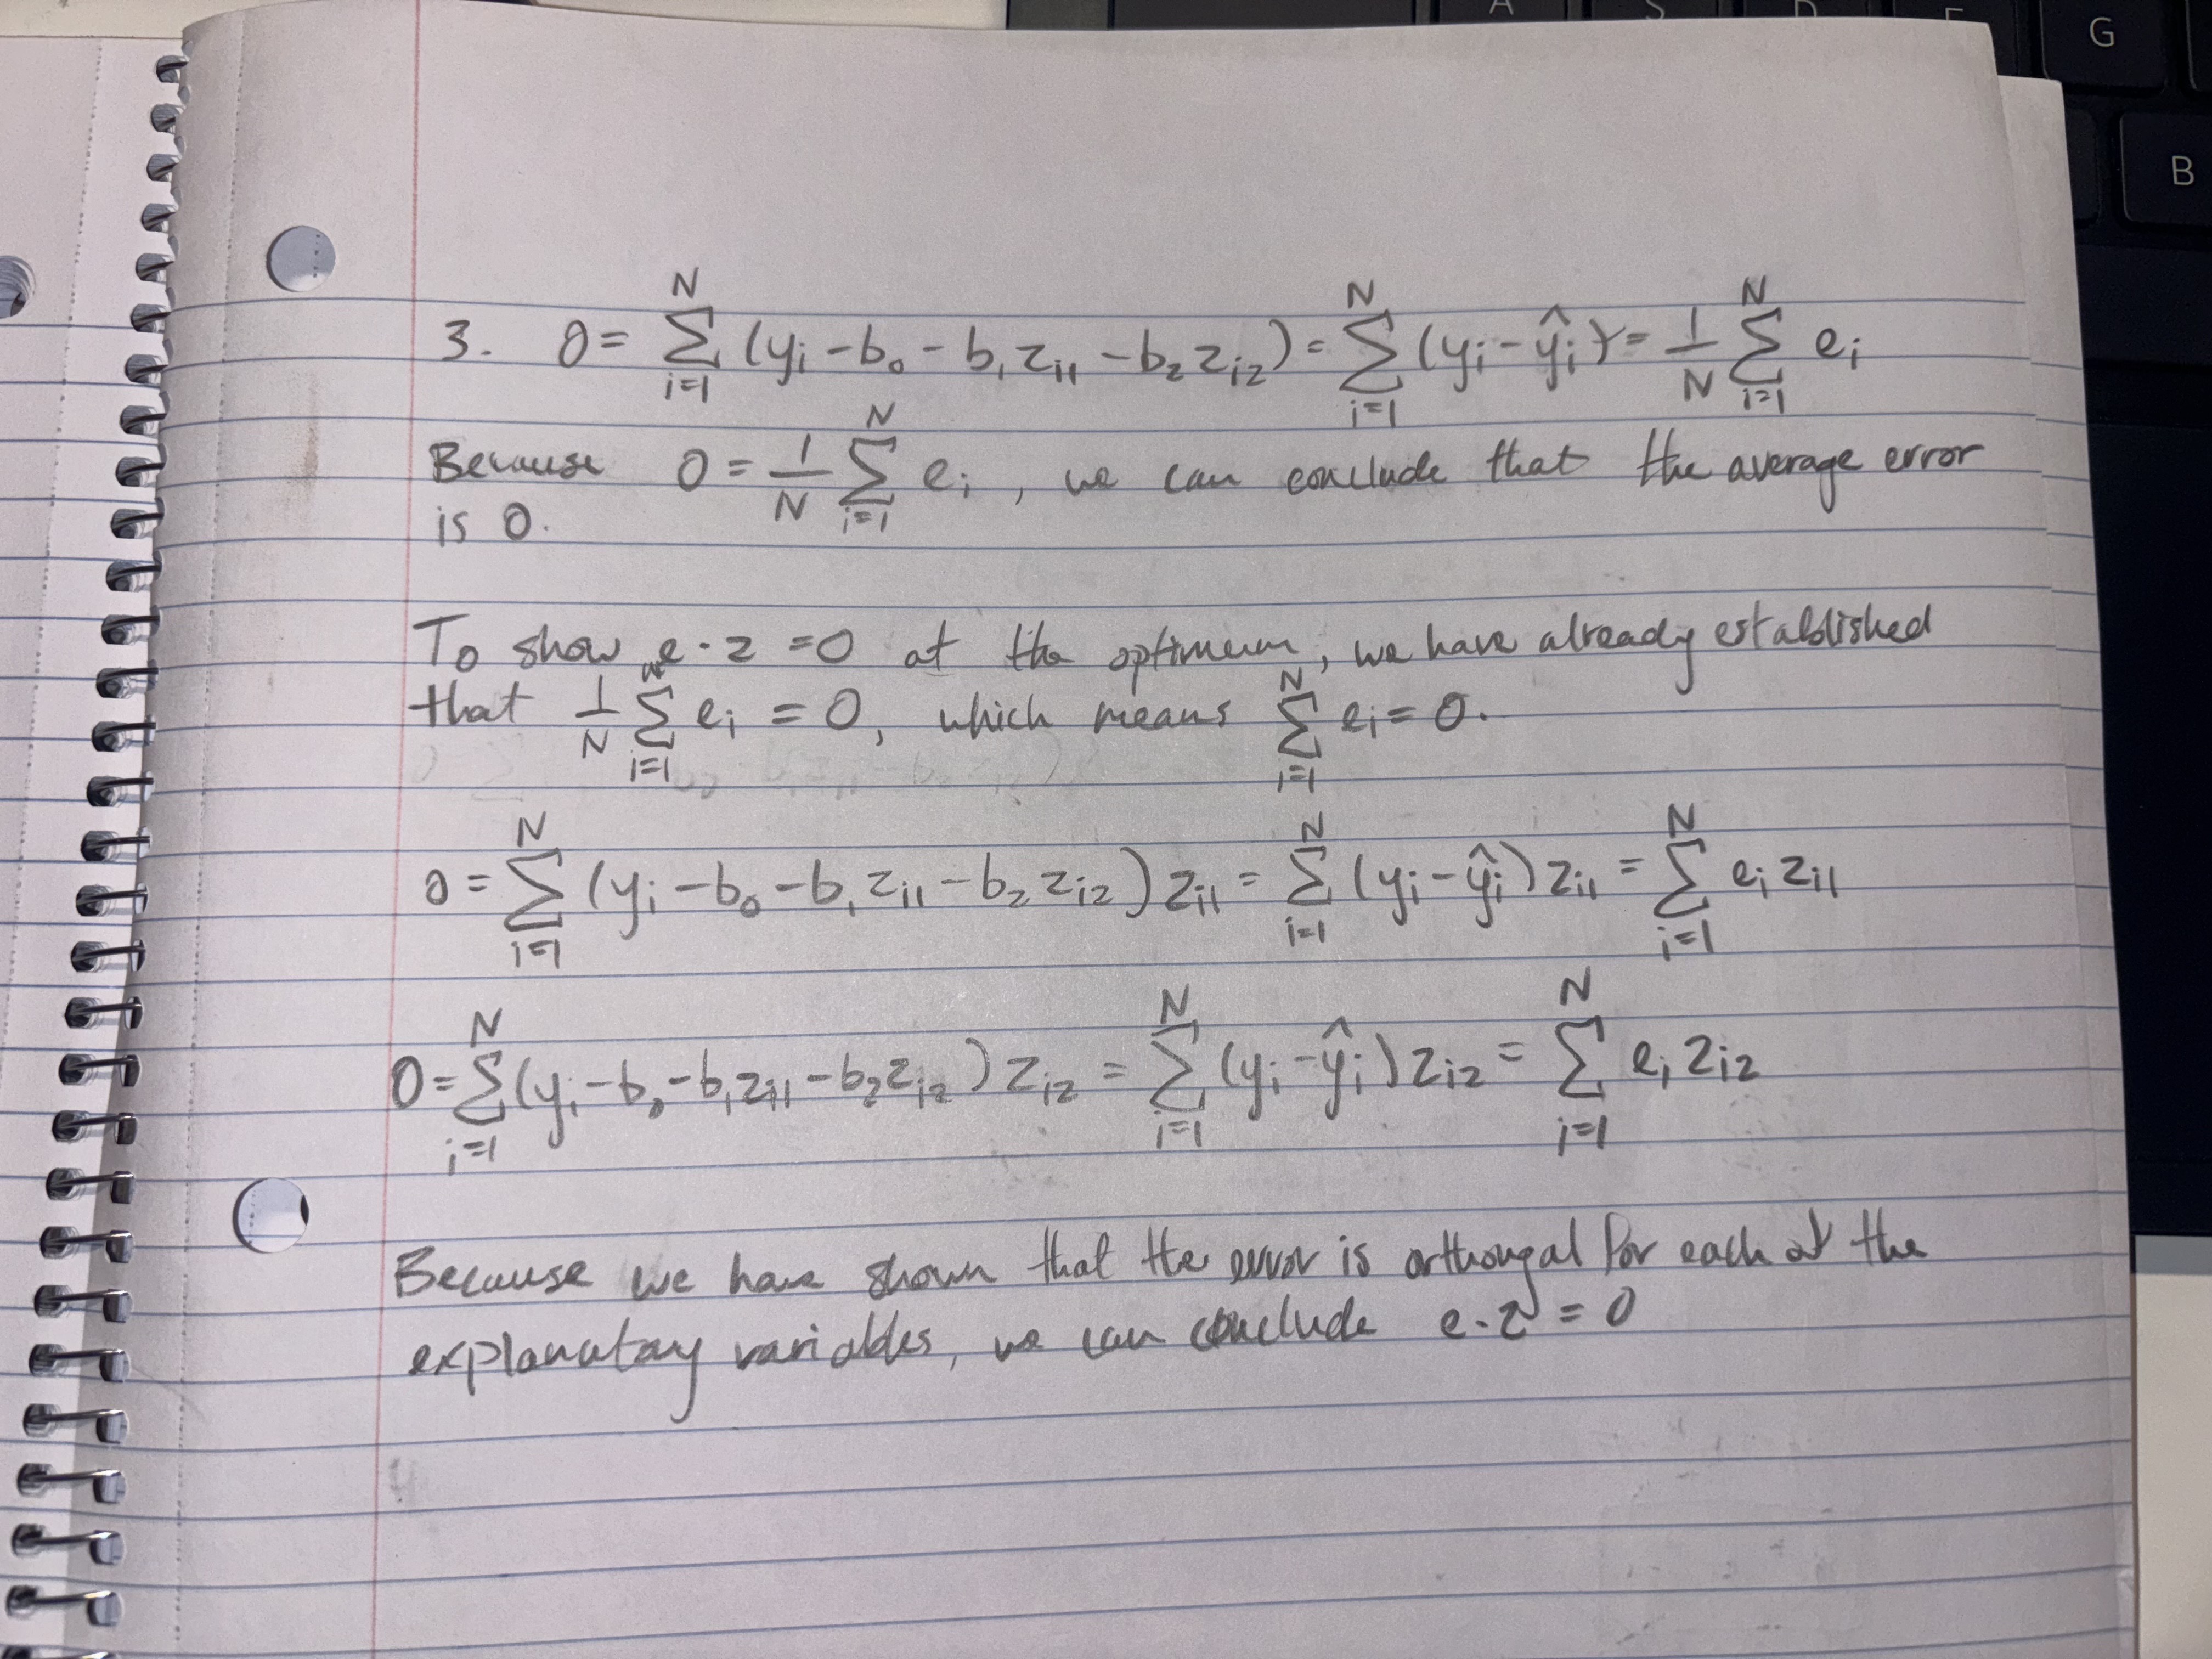 A S D F G
B
3. 0 = \sum_{i=1}^{N} (y_i - b_0 - b_1 z_{i1} - b_2 z_{i2}) = \sum_{i=1}^{N} (y_i - \hat{y}_i) = \frac{1}{N} \sum_{i=1}^{N} e_i
Because 0 = \frac{1}{N} \sum_{i=1}^{N} e_i , we can conclude that the average error
is 0.
To show e · z = 0 at the optimum, we have already established
that \frac{1}{N} \sum_{i=1}^{N} e_i = 0, which means \sum_{i=1}^{N} e_i = 0.
0 = \sum_{i=1}^{N} (y_i - b_0 - b_1 z_{i1} - b_2 z_{i2}) z_{i1} = \sum_{i=1}^{N} (y_i - \hat{y}_i) z_{i1} = \sum_{i=1}^{N} e_i z_{i1}
0 = \sum_{i=1}^{N} (y_i - b_0 - b_1 z_{i1} - b_2 z_{i2}) z_{i2} = \sum_{i=1}^{N} (y_i - \hat{y}_i) z_{i2} = \sum_{i=1}^{N} e_i z_{i2}
Because we have shown that the error is orthongal for each of the
explanatory variables, we can conclude e · z = 0